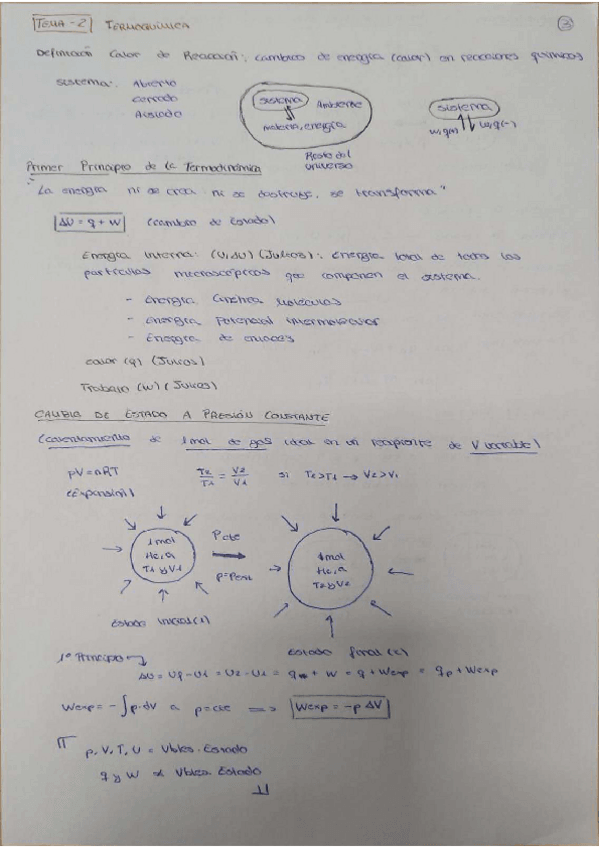 TEMA-2 TERMOQUÍMICA
3
Definición Calor de Reacción: cambios de energía (calor) en reacciones químicas
sistema: Abierto
Cerrado
Aislado
sistema
Ambiente
materia, energía
Resto del
universo
sistema
w,q(+) w,q(-)
Primer Principio de la Termodinámica
"La energía ni se crea ni se destruye, se transforma"
ΔU = q + w (cambio de Estado)
Energía interna: (U, ΔU) (Julios): Energía total de todas las
partículas microscópicas que componen el sistema.
- Energía Cinética Moléculas
- Energía Potencial intermolecular
- Energía de enlaces
Calor (q) (Julios)
Trabajo (w) (Julios)
CAMBIO DE ESTADO A PRESIÓN CONSTANTE
(calentamiento de 1 mol de gas ideal en un recipiente de V variable)
pV = nRT T2/T1 = V2/V1 si T2>T1 → V2>V1
(Expansión)
1 mol
He, g
T1 y V1
P cte
P=Pext
1 mol
He, g
T2 y V2
Estado inicial (1)
Estado final (2)
1º Principio → ΔU = Uf - Ui = U2 - U1 = q + w = q + Wexp = qp + Wexp
Wexp = -∫p·dV a p=cte => Wexp = -p ΔV
p, V, T, U = Vbles. Estado
q y w ≠ Vbles Estado